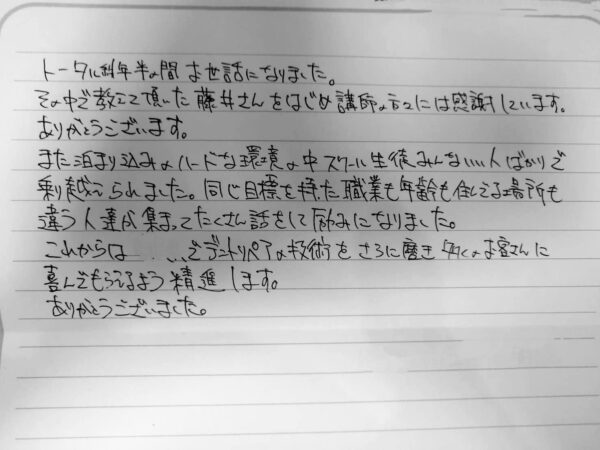 トータル約年半の間お世話になりました。
その中で教えて頂いた藤井さんをはじめ講師の方々には感謝しています。
ありがとうございます。
また泊まり込みのハードな環境の中スクール生徒みんないい人ばかりで
乗り越えられました。同じ目標を持った職業も年齢も住んでる場所も
違う人達が集まってたくさん話をして励みになりました。
これからは でデントリペアの技術をさらに磨き多くのお客さんに
喜んでもらえるよう精進します。
ありがとうございました。